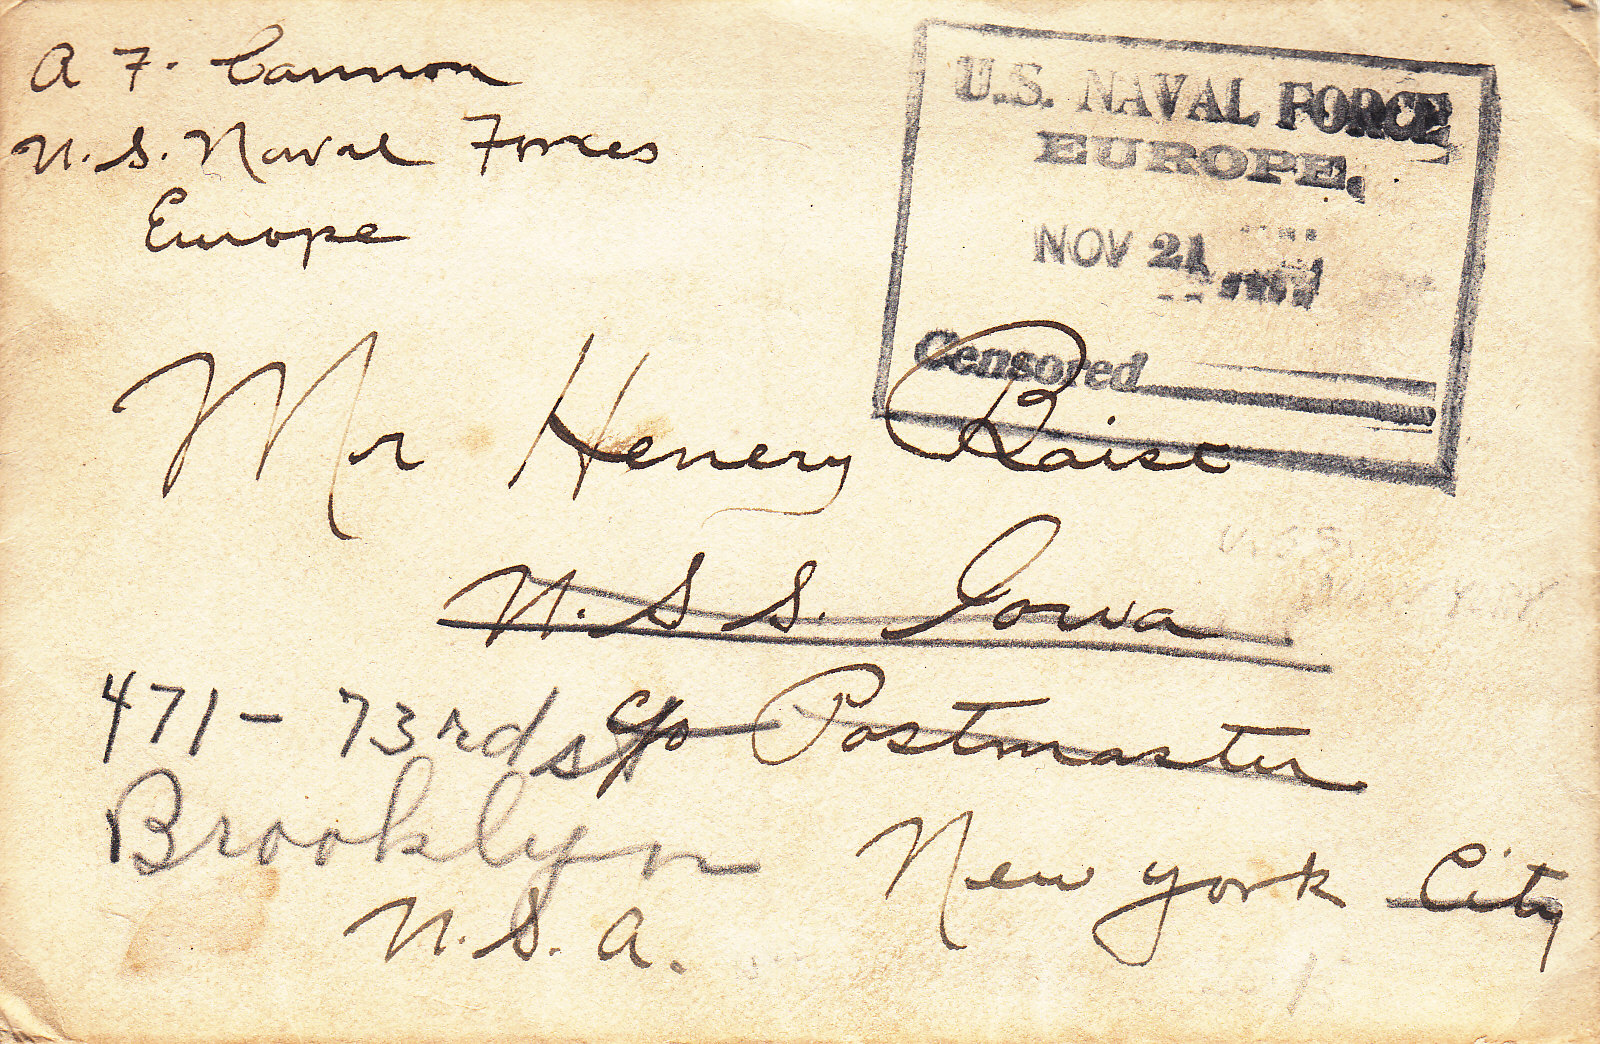 A F. Cannon
U.S. Naval Forces
Europe
U.S. NAVAL FORCE
EUROPE.
NOV 21
Censored
Mr Henery Raise
U.S.S.
U. S S. Iowa
471 - 73rd st
c/o Postmaster
Brooklyn
New York City
U.S.A.